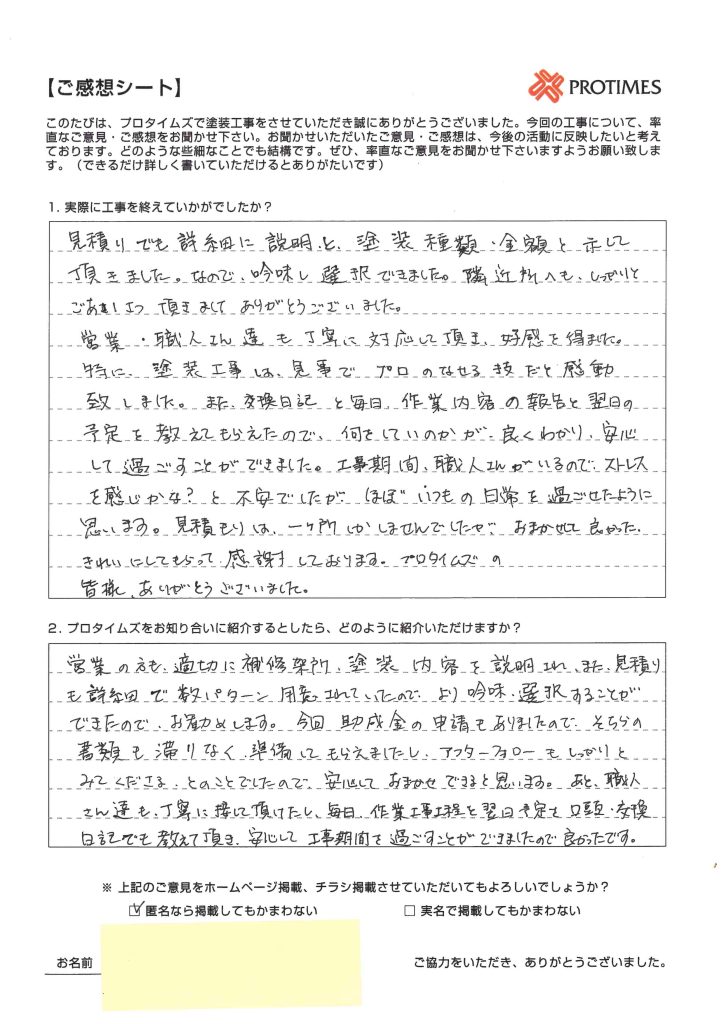 【ご感想シート】
PROTIMES
このたびは、プロタイムズで塗装工事をさせていただき誠にありがとうございました。今回の工事について、率
直なご意見・ご感想をお聞かせ下さい。お聞かせいただいたご意見・ご感想は、今後の活動に反映したいと考え
ております。どのような些細なことでも結構です。ぜひ、率直なご意見をお聞かせ下さいますようお願い致しま
す。（できるだけ詳しく書いていただけるとありがたいです）
1. 実際に工事を終えていかがでしたか？
見積りでも詳細に説明と、塗装種類・金額と示して
頂きました。なので、吟味し選択できました。隣近所へも、しっかりと
ごあいさつ頂きまして ありがとうございました。
営業・職人さん達も丁寧に対応して頂き、好感を得ました。
特に、塗装工事は、見事で プロのなせる技だと感動
致しました。また、交換日記と毎日、作業内容の報告と翌日の
予定を教えてもらえたので、何をしているのかが、良くわかり、安心
して過ごすことができました。工事期間、職人さんがいるので、ストレス
を感じかな？と不安でしたが ほぼいつもの日常を過ごせたように
思います。見積もりは、一ヶ所しかしませんでしたが、おまかせして良かった、
きれいにしてもらって感謝しております。プロタイムズの
皆様、ありがとうございました。
2. プロタイムズをお知り合いに紹介するとしたら、どのように紹介いただけますか？
営業の方も、適切に補修架所、塗装内容を説明され、また、見積り
も詳細で数パターン用意されていたので より吟味、選択することが
できたので、お勧めします。今回助成金の申請もありましたので、そちらの
書類も滞りなく、準備してもらえましたし、アフターフォローもしっかりと
みてくださる、とのことでしたので、安心しておまかせできると思います。あと、職人
さん達も、丁寧に接して頂けたし、毎日、作業工事工程と翌日予定を口頭・交換
日記でも教えて頂き、安心して工事期間を過ごすことができましたので良かったです。
※ 上記のご意見をホームページ掲載、チラシ掲載させていただいてもよろしいでしょうか？
☑ 匿名なら掲載してもかまわない □ 実名で掲載してもかまわない
お名前 ご協力をいただき、ありがとうございました。